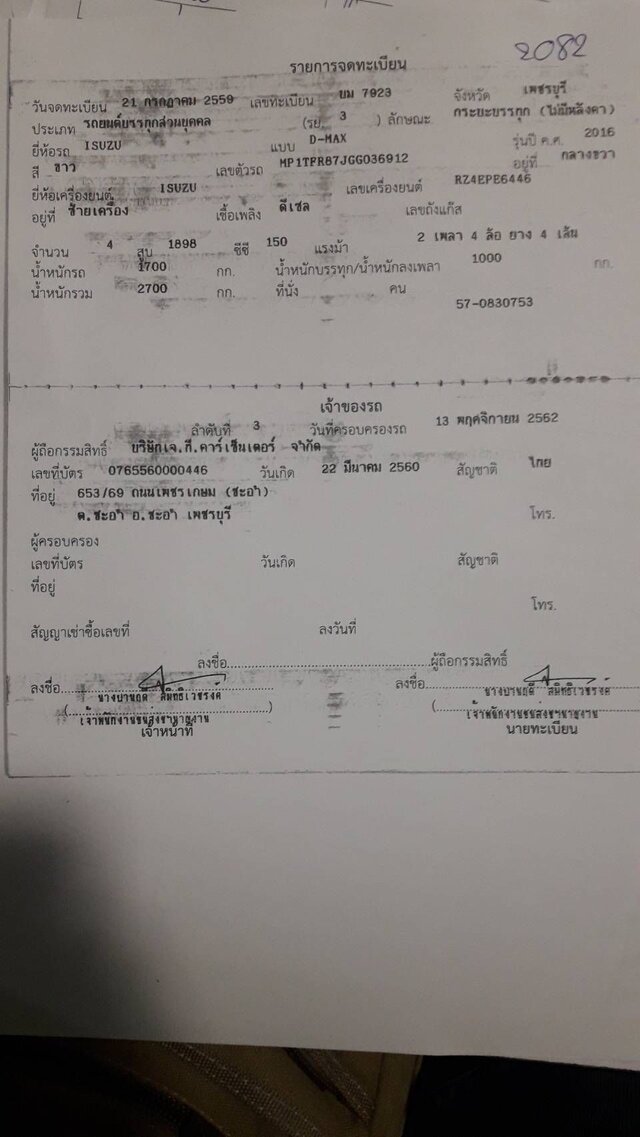 2082
รายการจดทะเบียน
วันจดทะเบียน 21 กรกฎาคม 2559 เลขทะเบียน ยม 7923 จังหวัด เพชรบุรี
ประเภท รถยนต์บรรทุกส่วนบุคคล (รย. 3 ) ลักษณะ กระยะบรรทุก (ไม่มีหลังคา)
ยี่ห้อรถ ISUZU แบบ D-MAX รุ่นปี ค.ศ. 2016
สี ขาว เลขตัวรถ MP1TFR87JGG036912 อยู่ที่ กลางขวา
ยี่ห้อเครื่องยนต์ ISUZU เลขเครื่องยนต์ RZ4EPE6446
อยู่ที่ ซ้ายเครื่อง เชื้อเพลิง ดีเซล เลขถังแก๊ส
จำนวน 4 สูบ 1898 ซีซี 150 แรงม้า 2 เพลา 4 ล้อ ยาง 4 เส้น
น้ำหนักรถ 1700 กก. น้ำหนักบรรทุก/น้ำหนักลงเพลา 1000 กก.
น้ำหนักรวม 2700 กก. ที่นั่ง คน
57-0830753
เจ้าของรถ
ลำดับที่ 3 วันที่ครอบครองรถ 13 พฤศจิกายน 2562
ผู้ถือกรรมสิทธิ์ บริษัทเจ.กี.คาร์เซ็นเตอร์ จำกัด
เลขที่บัตร 0765560000446 วันเกิด 22 มีนาคม 2560 สัญชาติ ไทย
ที่อยู่ 653/69 ถนนเพชรเกษม (ชะอำ)
ต.ชะอำ อ.ชะอำ เพชรบุรี โทร.
ผู้ครอบครอง
เลขที่บัตร วันเกิด สัญชาติ
ที่อยู่
โทร.
สัญญาเช่าซื้อเลขที่ ลงวันที่
ลงชื่อ ผู้ถือกรรมสิทธิ์
ลงชื่อ ลงชื่อ
เจ้าหน้าที่ นายทะเบียน